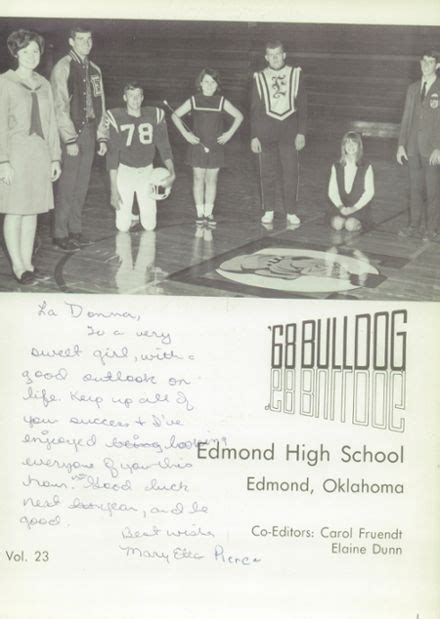 78
E
La Donna,
To a very
sweet girl, with a
good outlook on
life. Keep up all of
your success & I've
enjoyed
everyone of you this
Good luck
next year, and be
good.
Best wishes
Mary Etta Pierce
'68 BULLDOG
'68 BULLDOG
Edmond High School
Edmond, Oklahoma
Co-Editors: Carol Fruendt
Elaine Dunn
Vol. 23
1